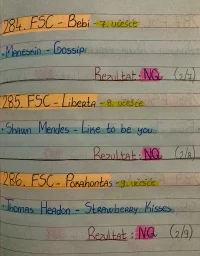 284. FSC - Bebi - 7. učešće
- Maneskin - Gossip
Rezultat: NQ (2/7)
285. FSC - Liberta - 8. učešće
- Shawn Mendes - Like to be you
Rezultat: NQ (2/8)
286. FSC - Pocahontas - 9. učešće
- Thomas Headon - Strawberry Kisses
Rezultat: NQ (2/9)